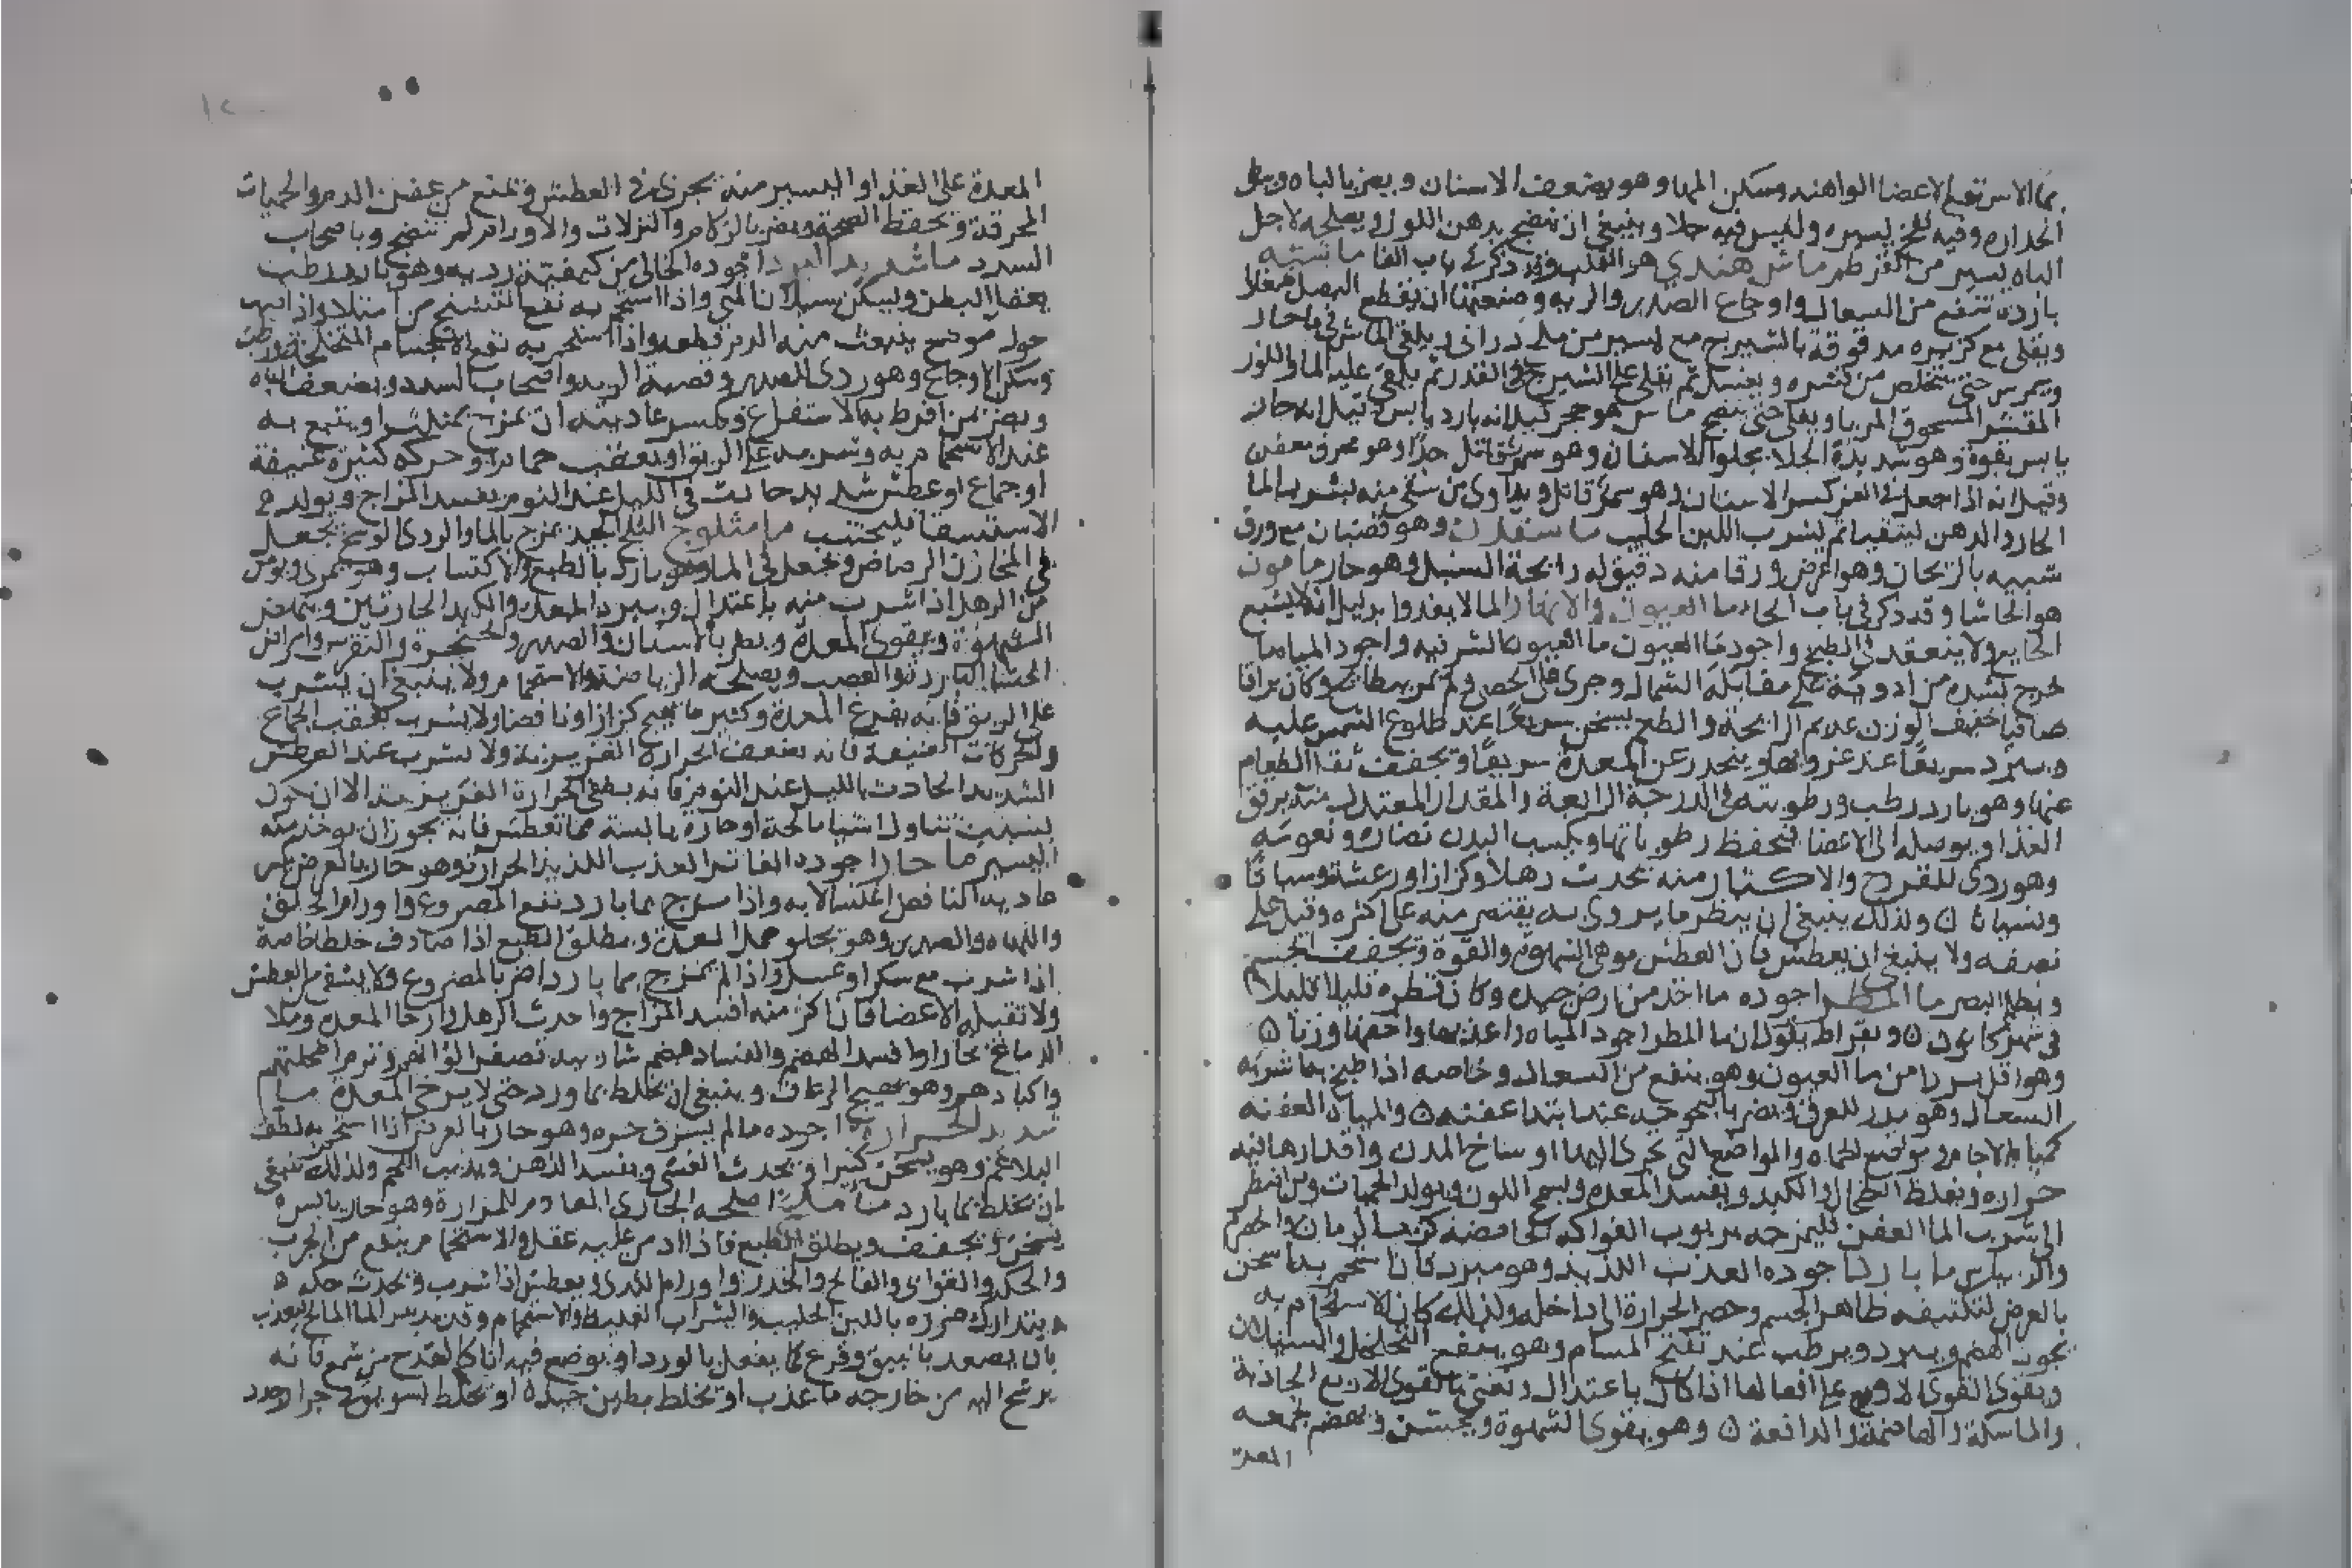 بما الاس تنفع الاعضا الواهنه وسكن المها وهو يضعف الاسنان ويعز بالباه ويطى
الحداره وفيه نفخ يسيره وليس فيه جلا وينبغى ان ينضج بدهن اللوز ويصلحه لاجل
الباه يسير من القرطم ماش هندي هو القلب وقد ذكر فى باب الفا ماشيه
بارده تنفع من السعال واوجاع الصدر والريه وصنعتها ان يقطع البصل صغارا
ويقلى مع كزبره مدقوقة بالشيرج مع يسير من ملح دراني ويلقى الماش فى ما حار
ويمرس حتى يتخلص من قشره ويغسل ثم يقلى على الشيرج فى القدر ثم يلقى عليه الما واللوز
المقشر المسحوق المربا ويغلى حتى ينضج ماس هو حجر قيل انه بارد يابس وقيل انه حار
يابس بقوة وهو شديدة الجلا يجلوا الاسنان وهو سم قاتل جدا وهو محرق معفن
وقيل انه اذا جعل فى الفم كسر الاسنان وهو سم قاتل ويداوى من سقى منه بشرب الما
الحار والدهن ليتقيا ثم يشرب اللبن الحليب ماسفدرن وهو قضبان مع ورق
شبيه بالريحان وهو اعرض ورقا منه دقيق له رايحة السنبل وهو حار مامون
هو الحاشا وقد ذكر فى باب الحاء ما العيون والانهار الما لا يغدوا بدليل انه لا يشبع
الجايع ولا ينعقد فى الطبخ واجود ما العيون ما العيون الشرقيه واجود المياه ما
خرج بشده من ادوية على مقابلة الشمال وجرى على الحصى ولم تمر بطايح وكان براقا
صافيا خفيف الوزن عديم الرايحة والطعم يسخن سريعا عند طلوع الشمس عليه
ويبرد سريعا عند غروبها وينحدر عن المعدة سريعا وتخفف ثقل الطعام
عنها وهو بارد رطب ورطوبته فى الدرجة الرابعة والمقدار المعتدل منه يرقق
الغذا ويوصله الى الاعضا فيحفظ رطوباتها ويكسب البدن نضاره ونعومه
وهو ردى للقروح والاكثار منه يحدث رهلا وكزازا ورعشة وسباتا
ونسيانا ولذلك ينبغى ان ينظر ما يروى به يقتصر منه على اكثره وقيل على
نصفه ولا ينبغى ان يعطش فان العطش يوهى الشهوة والقوة وتجفف الجسم
ويظلم البصر ما المطر اجوده ما اخذ من ارض جيده وكان قطره قليلا قليلا
فى شهر كانون وبقراط يقول ان ما المطر اجود المياه واعذبها واخفها وزنا
وهو اقل بردا من ما العيون وهو ينفع من السعال وخاصه اذا طبخ بها شربه
السعال وهو مدر للعرق ويضر بالبحوحه عند ابتدا عفنه والمياه العفنه
كمياه الاجام ومواضع الحماه والمواضع التى تجرى اليها اوساخ المدن واقذارها فيه
حراره ويغلظ الطحال والكبد ويفسد المعده ويسمج اللون ويولد الحميات ومن اضطر
الى شرب الما العفن فليمزجه بربوب الفواكه الحامضه كرب الرمان والحصرم
والريباس ما بارد اجوده العذب اللذيذ وهو مبرد فان استحم به اسخن
بالعرض لتكثيفه ظاهر الجسم وحصر الحرارة الى داخله ولذلك كان الاستحمام به
يجود الهضم ويبرد ويرطب عند تفتح المسام وهو ينفع التخلخل والسيلان
ويقوى القوى الاربع على افعالها اذا كان باعتدال وتعنى بالقوى الاربع الجاذبة
والماسكة والهاضمة والدافعة وهو يقوى الشهوة ويحسن ويهضم بجمعه
المعدة
المعدة على الغذا واليسير منه يجزى فى العطش وتمنع من عفن الدم والحميات
المحرقة وتحفظ الصحة ويضر بالزكام والنزلات والاورام لم تنضج وباصحاب
السدد ما شديد البرد اجوده الخالى من كيفية رديه وهو بارد رطب
يعقل البطن ويسكن سيلان المنى واذا استحم به نفع المتشنج من امتلا واذا انهر
حول موضع ينبعث منه الدم قطعه واذا استحم به نفع الاجسام المتخلخله ورطب
وسكن الاوجاع وهو ردى للصدر وقصبة الريه واصحاب السدد ويضعف الباه
ويضر من افرط به الاستفراغ وكسر عاديته ان يمزج بمثله شرابا وينبع به
عند الاستحمام به وشربه على الريق او بعقب حمام او حركه كثيرة عنيفة
او جماع او عطش شديد حادث فى الليل عند النوم يفسد المزاج ويولد
الاستسقا فليجتنب ما مثلوج الثلج الجيد يمزج بالما والردى الوسخ يجعل
فى المخازن الرصاص ويجعل فى الما وهو بارد بالطبع والاكتساب وهو يمرى ويومن
من الرهل اذا شرب منه باعتدال ويبرد المعده والكبد الحارتين ويهضم
الشهوة ويقوى المعدة ويضر بالاسنان والصدر والحنجرة والنقرس وامراض
الحشا الباردة والعصب ويصلحه الرياضة والاستحمام ولا ينبغى ان يشرب
على الريق فانه يقرع المعدة وكثيرا ما يهيج كزازا ونافضا ولا يشرب بعقب الجماع
والحركات العنيفة فانه يضعف الحرارة الغريزية ولا يشرب عند العطش
الشديد الحادث بالليل عند النوم فانه يطفى الحرارة الغريزيه الا ان يكون
بسبب تناول اشيا مالحة او حارة يابسة مما تعطش فانه يجوز ان يوخذ منه
اليسير ما حار اجوده الفاتر العذب اللذيذ الحرارة وهو حار بالعرض يكسر
عادية النافض اعنى الابه واذا مزج بما بارد نفع المصروع واورام الحلق
واللهاه والصدر وهو يجلو خمل المعدة ويطلق الطبع اذا صادف خلطا خاصة
اذا شرب مع سكر او عسل واذا لم يمزج بما بارد اضر بالمصروع ولا يشفى من العطش
ولا تقبله الاعضا فان اكثر منه افسد المزاج واحدث الرهل وارخا المعده وملا
الدماغ بخارا وافسد الهضم والفساد هضم شاربه تصفر الوانهم وترم اطحلتهم
واكبادهم وهو يهيج الرعاف وينبغى ان يخلط بماورد حتى لا يرخى المعدة ما
شديد الحرارة اجوده مالم يسرف حره وهو حار بالعرض اذا استحم به لطف
البلاغم وهو يسخن كثيرا ويحدث الغشى ويفسد الذهن ويذيب اللحم ولذلك ينبغى
ان يخلط بما بارد ما ملح اصلحه الجارى العادم للمرارة وهو حار يابس
يسخن ويجفف ويطلق الطبع فاذا ادمن عليه عقل والاستحمام به ينفع من الجرب
والحكه والقوابى والفالج والخدر واورام الثدى ويعطش اذا شرب ويحدث حكه
ويتدارك ضرره باللبن الحليب والشراب الغليظ والاستحمام وقد يدبر الما المالح ليعذب
بان يصعد بانبيق وقرع كما يفعل بالورد او يوضع فيه انا كالقدح من شمع فانه
يرشح اليه من خارجه ما عذب او يخلط بطين جيد او يخلط بسويق جرا وحد